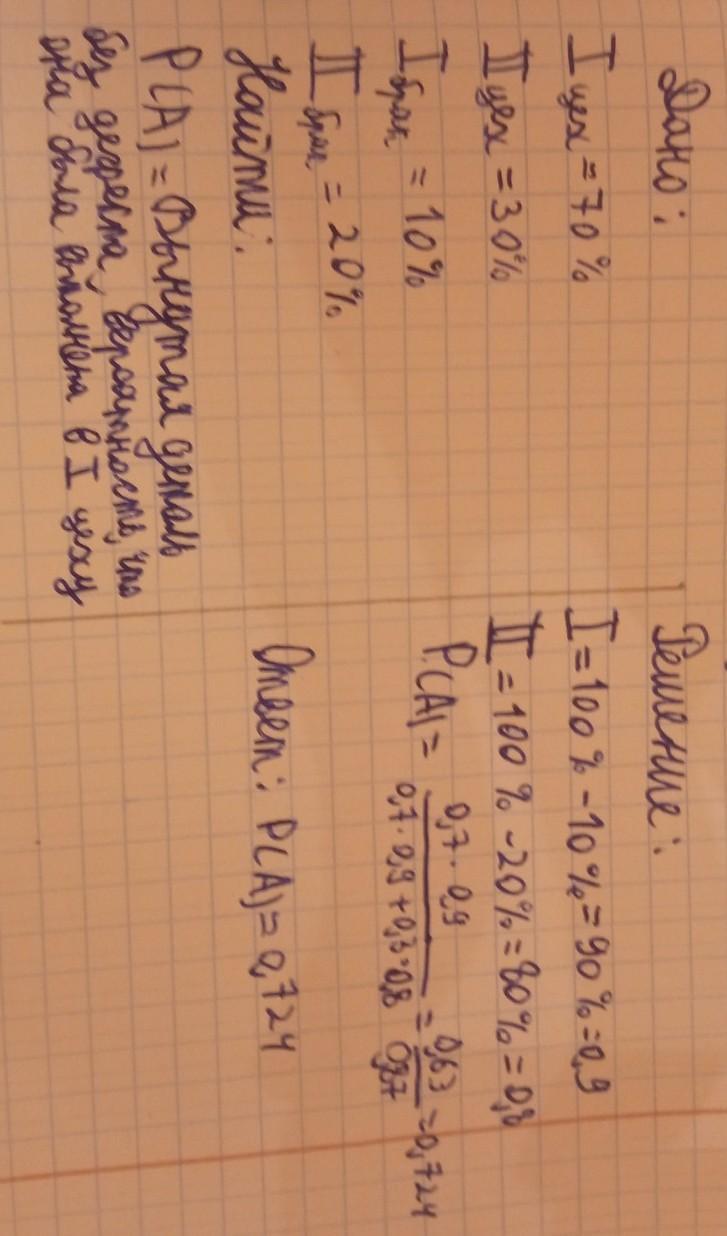 Дано:
I цех = 70%
II цех = 30%
I брак = 10%
II брак = 20%
Найти:
P(A) = Вынутая деталь
без дефекта, вероятность, что
она была выполнена в I цеху
Решение:
I = 100% - 10% = 90% = 0,9
II = 100% - 20% = 80% = 0,8
P(A) = 0,7 · 0,9 / 0,7 · 0,9 + 0,3 · 0,8 = 0,63 / 0,87 = 0,724
Ответ: P(A) = 0,724